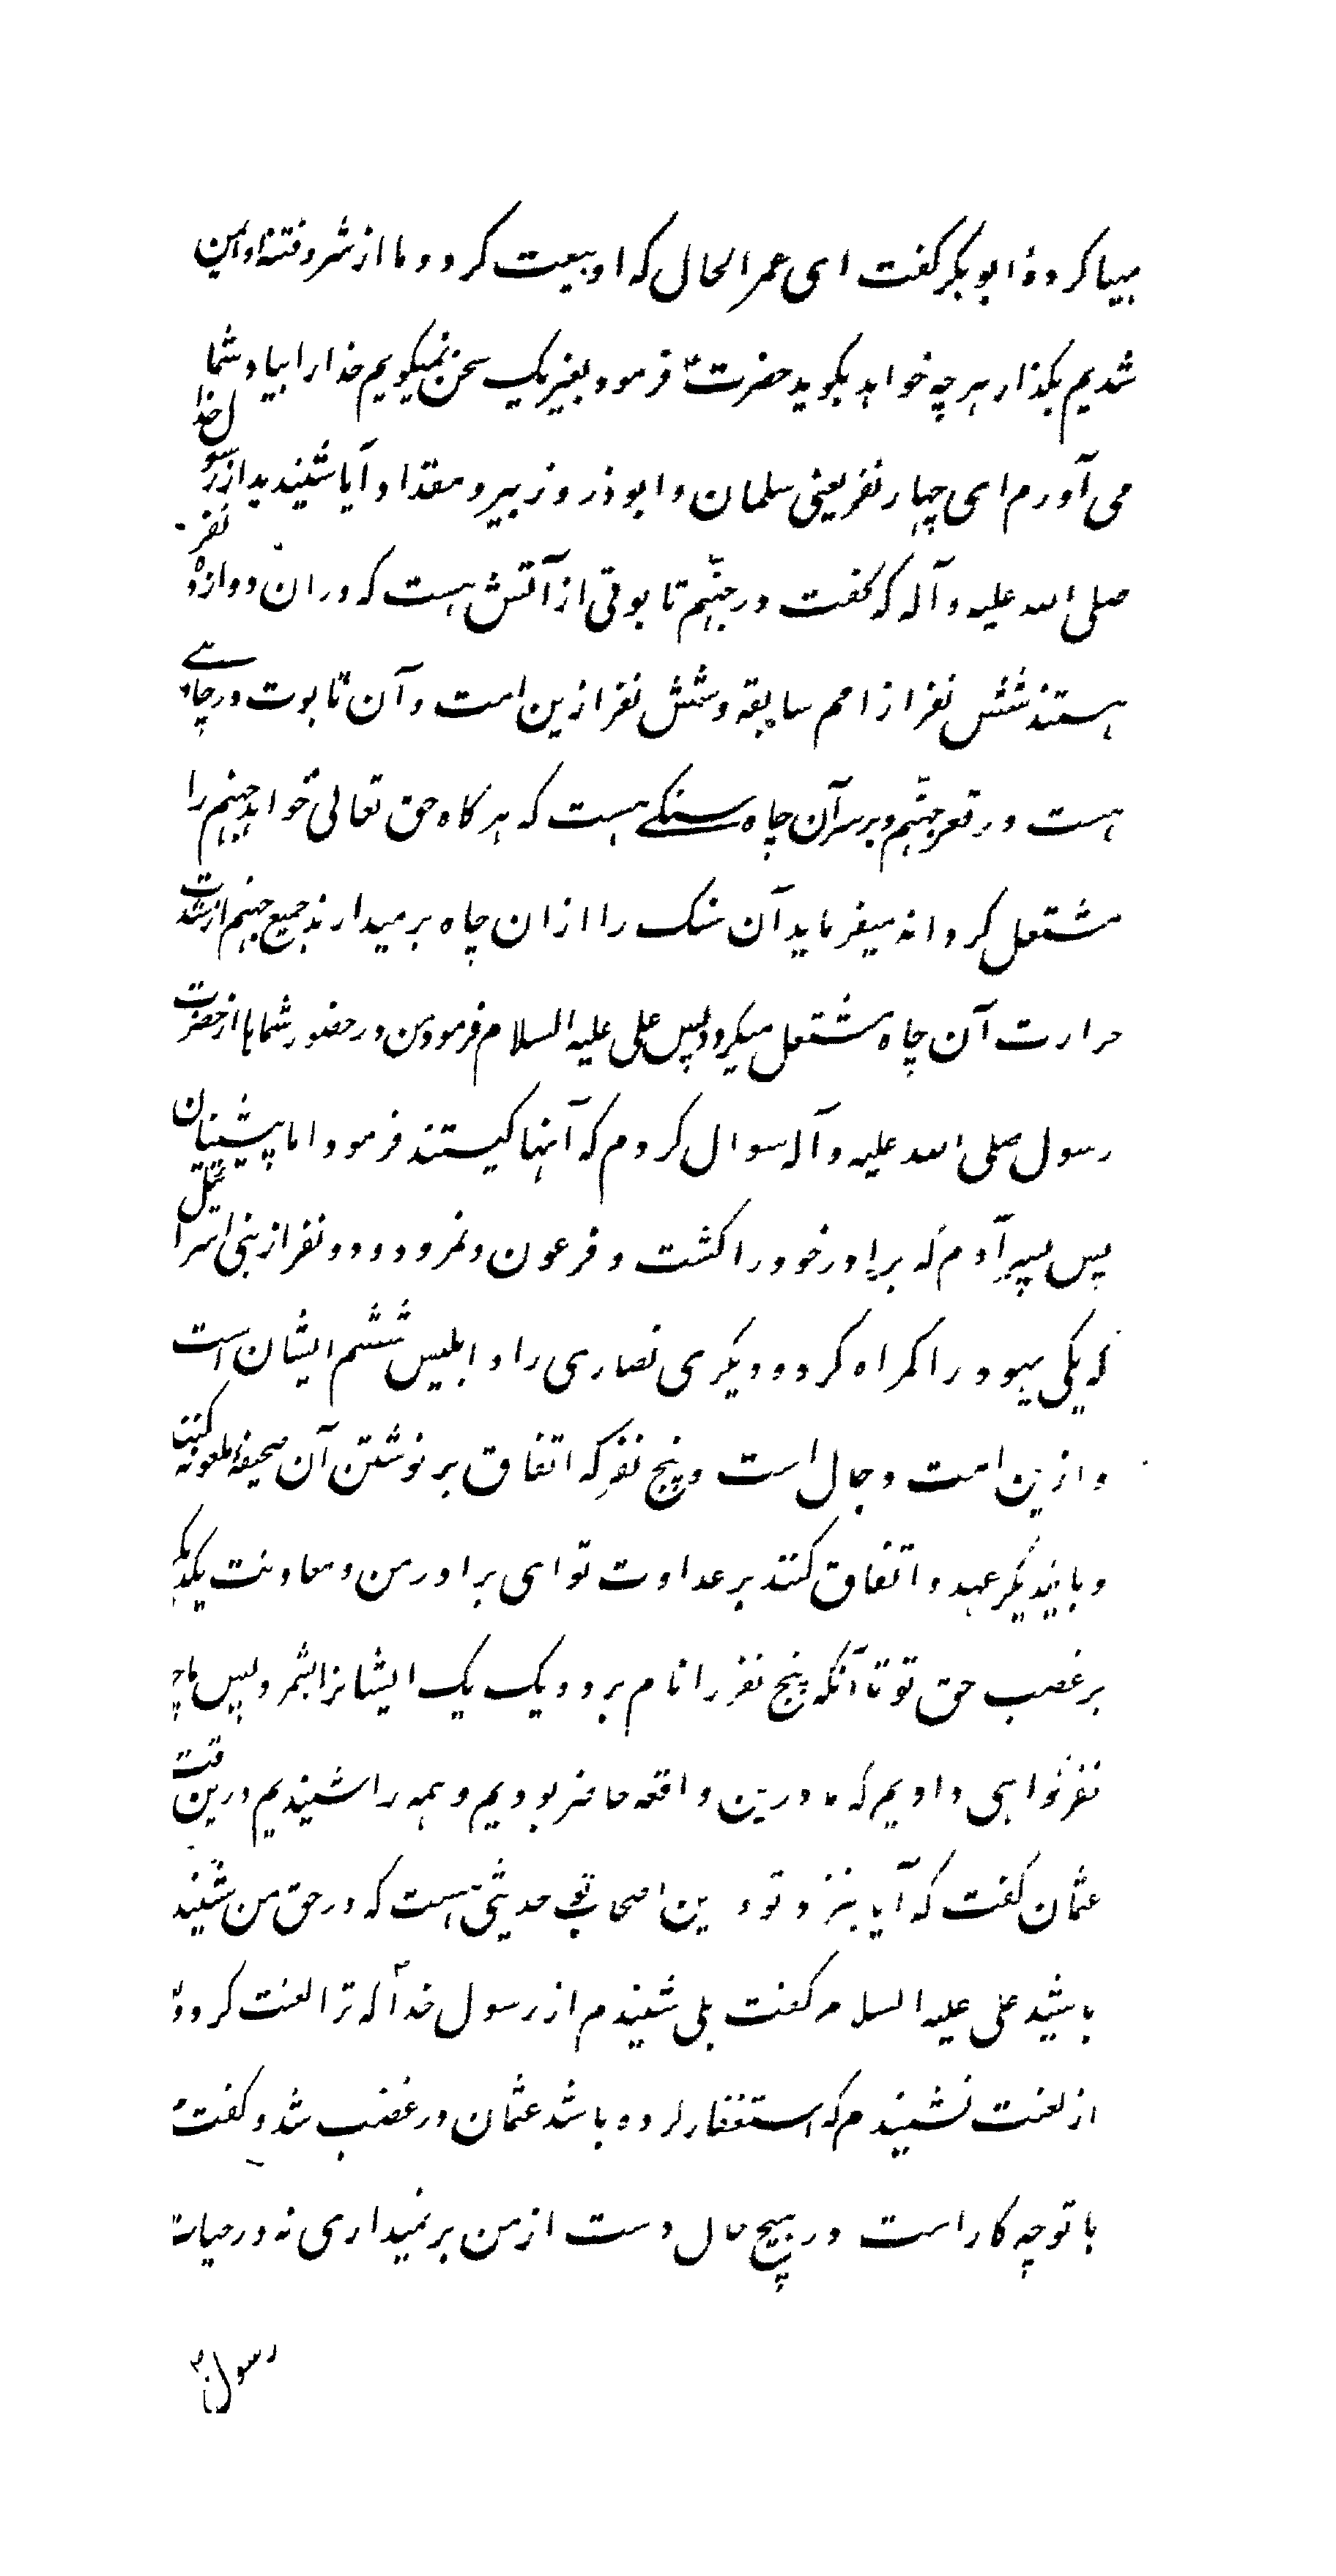 مهیا کرده ابو بکر گفت ای عمر الحال که او بیعت کرد و ما از شر و فتنه او ایمن
شدیم بگذار هر چه خواهد بگوید حضرت ؑ فرمود بغیر یک سخن نمیگویم خدا را بیاد شما
می آورم ای چهار نفر یعنی سلمان و ابوذر و زبیر و مقداد آیا شنیدید از رسول خدا
صلی الله علیه و آله که گفت در جهنّم تابوتی از آتش هست که در ان دوازده نفر
هستند شش نفر از امم سابقه و شش نفر ازین امت و آن تابوت در چاهے
هست در قعر جهنّم و بر سر آن چاه سنکے هست که هر کاه حق تعالی خواهد جهنم را
مشتعل کرداند میفرماید آن سنک را از ان چاه بر میدارند جمیع جهنم از شدت
حرارت آن چاه مشتعل میکردد پس علی علیه السلام فرمود من در حضور شماها از حضرت
رسول صلی الله علیه و آله سوال کردم که آنها کیستند فرمود اما پیشینیان
پس پسر آدم که برادر خود را کشت و فرعون و نمرود و دو نفر از بنی اسرائیل
که یکی یهود را کمراه کرد و دیکری نصاری را و ابلیس ششم ایشان است
و ازین امت دجال است و پنج نفر که اتفاق بر نوشتن آن صحیفه ملعونه کنند
و با یکدیگر عهد و اتفاق کنند بر عداوت تو ای برادر من و معاونت یکدیگر
بر غصب حق تو تا آنکه پنج نفر را نام برد و یک یک ایشانرا بشمرد پس ما چهار
نفر گواهی دادیم که ما درین واقعه حاضر بودیم و همه را شنیدیم درین وقت
عثمان گفت که آیا بنزد تو و این اصحاب تو حدیثی هست که در حق من شنیده
باشید علی علیه السلام گفت بلی شنیدم از رسول خدا ؐ که ترا لعنت کرد و بعد
از لعنت نشنیدم که استغفار کرده باشد عثمان در غضب شد و گفت مرا
با تو چه کار است در هیچ حال دست از من بر نمیداری نه در حیات
رسول ؐ